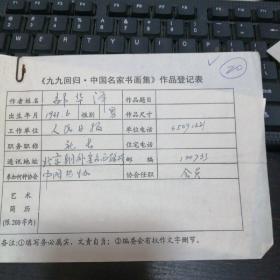 20
《九九回归·中国名家书画集》作品登记表
作者姓名 邵华泽 作品题目
出生年月 1933.6 性别 男 作品尺寸
工作单位 人民日报 单位电话
职务职称 社长 住宅电话
通讯地址 北京朝外金台西路2号 邮编 100733
参加何种协会 中国书协 协会任职 会员
艺术
简历
(限200字内)
备注：①填写务必属实，文责自负；②编委会有权作文字删节。